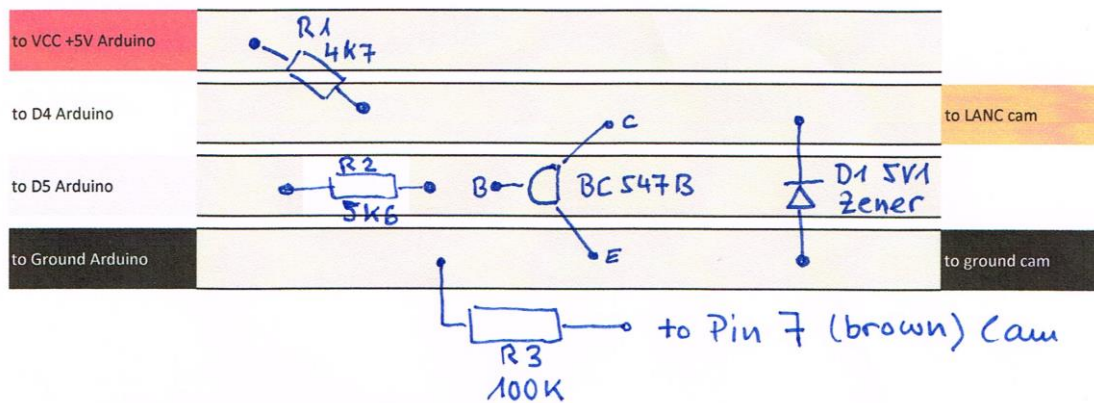 to VCC +5V Arduino
R1
4K7
to D4 Arduino
to LANC cam
C
to D5 Arduino
R2
5K6
B
BC547B
D1 5V1
Zener
to Ground Arduino
E
to ground cam
R3
100K
to Pin 7 (brown) Cam